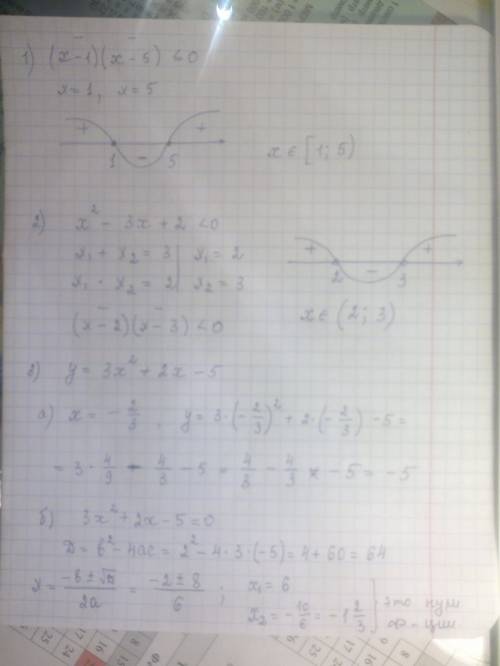 1) (x - 1)(x - 5) < 0
x = 1, x = 5
+ - +
1 5
x ∈ [1; 5)
2) x² - 3x + 2 < 0
x₁ + x₂ = 3 | x₁ = 2
x₁ · x₂ = 2 | x₂ = 3
(x - 2)(x - 3) < 0
+ - +
2 3
x ∈ (2; 3)
3) y = 3x² + 2x - 5
а) x = -2/3, y = 3·(-2/3)² + 2·(-2/3) - 5 =
= 3·4/9 - 4/3 - 5 = 4/3 - 4/3 - 5 = -5
б) 3x² + 2x - 5 = 0
D = b² - 4ac = 2² - 4·3·(-5) = 4 + 60 = 64
x = (-b ± √D)/2a = (-2 ± 8)/6 ; x₁ = 6
x₂ = -10/6 = -1 2/3 } это нули ф-ции